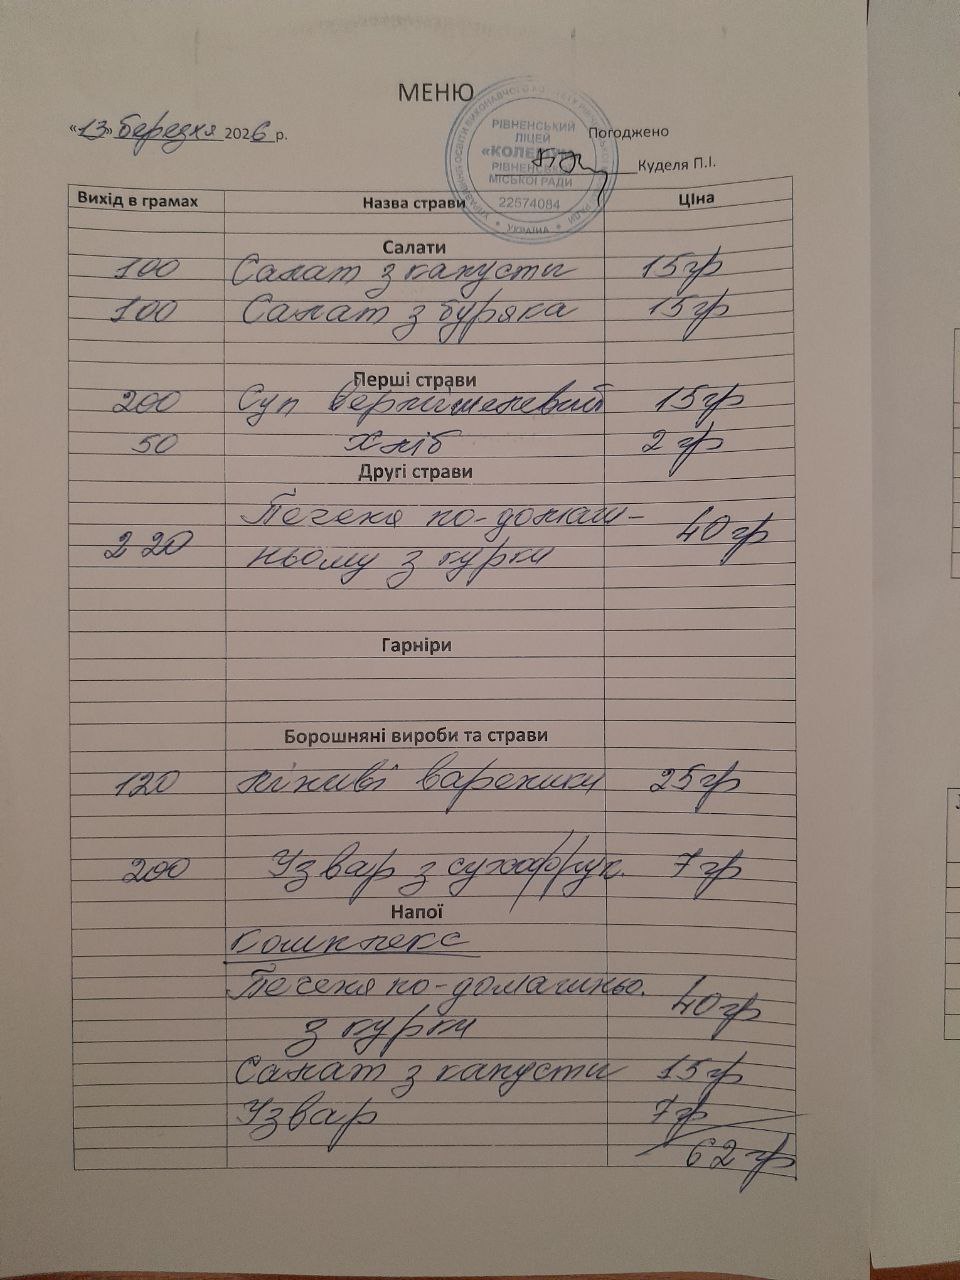 МЕНЮ
«13» березня 2026 р.
Погоджено
Куделя П.І.
УПРАВЛІННЯ ОСВІТИ ВИКОНАВЧОГО
РІВНЕНСЬКИЙ
ЛІЦЕЙ
«КОЛЕГІУМ»
РІВНЕНСЬКОЇ
МІСЬКОЇ РАДИ
22574084
УКРАЇНА
Вихід в грамах Назва страви Ціна
Салати
100 Салат з капусти 15гр
100 Салат з буряка 15гр
Перші страви
200 Суп вермішелевий 15гр
50 Хліб 2 гр
Другі страви
Печеня по-домаш-
220 40 гр
ньому з курки
Гарніри
Борошняні вироби та страви
120 ліниві вареники 25гр
200 Узвар з сухофрук. 7 гр
Напої
Комплекс
Печеня по-домашньо.
з курки 40гр
Салат з капусти 15гр
Узвар 7гр
62 гр